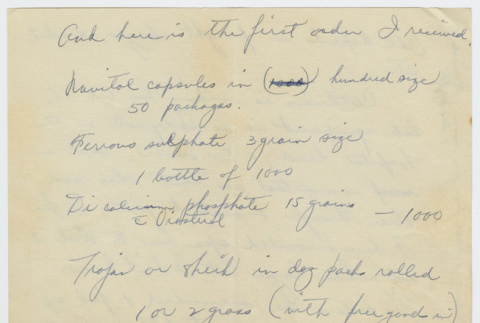 And here is the first order I received.
Navitol capsules in (1000) hundred size
50 packages.
Ferrous sulphate 3 grain size
1 bottle of 1000
Di calcium phosphate 15 grains
c̄ Viosterol — 1000
Trojan or Sheik in doz packs rolled
1 or 2 gross (with free goods in)